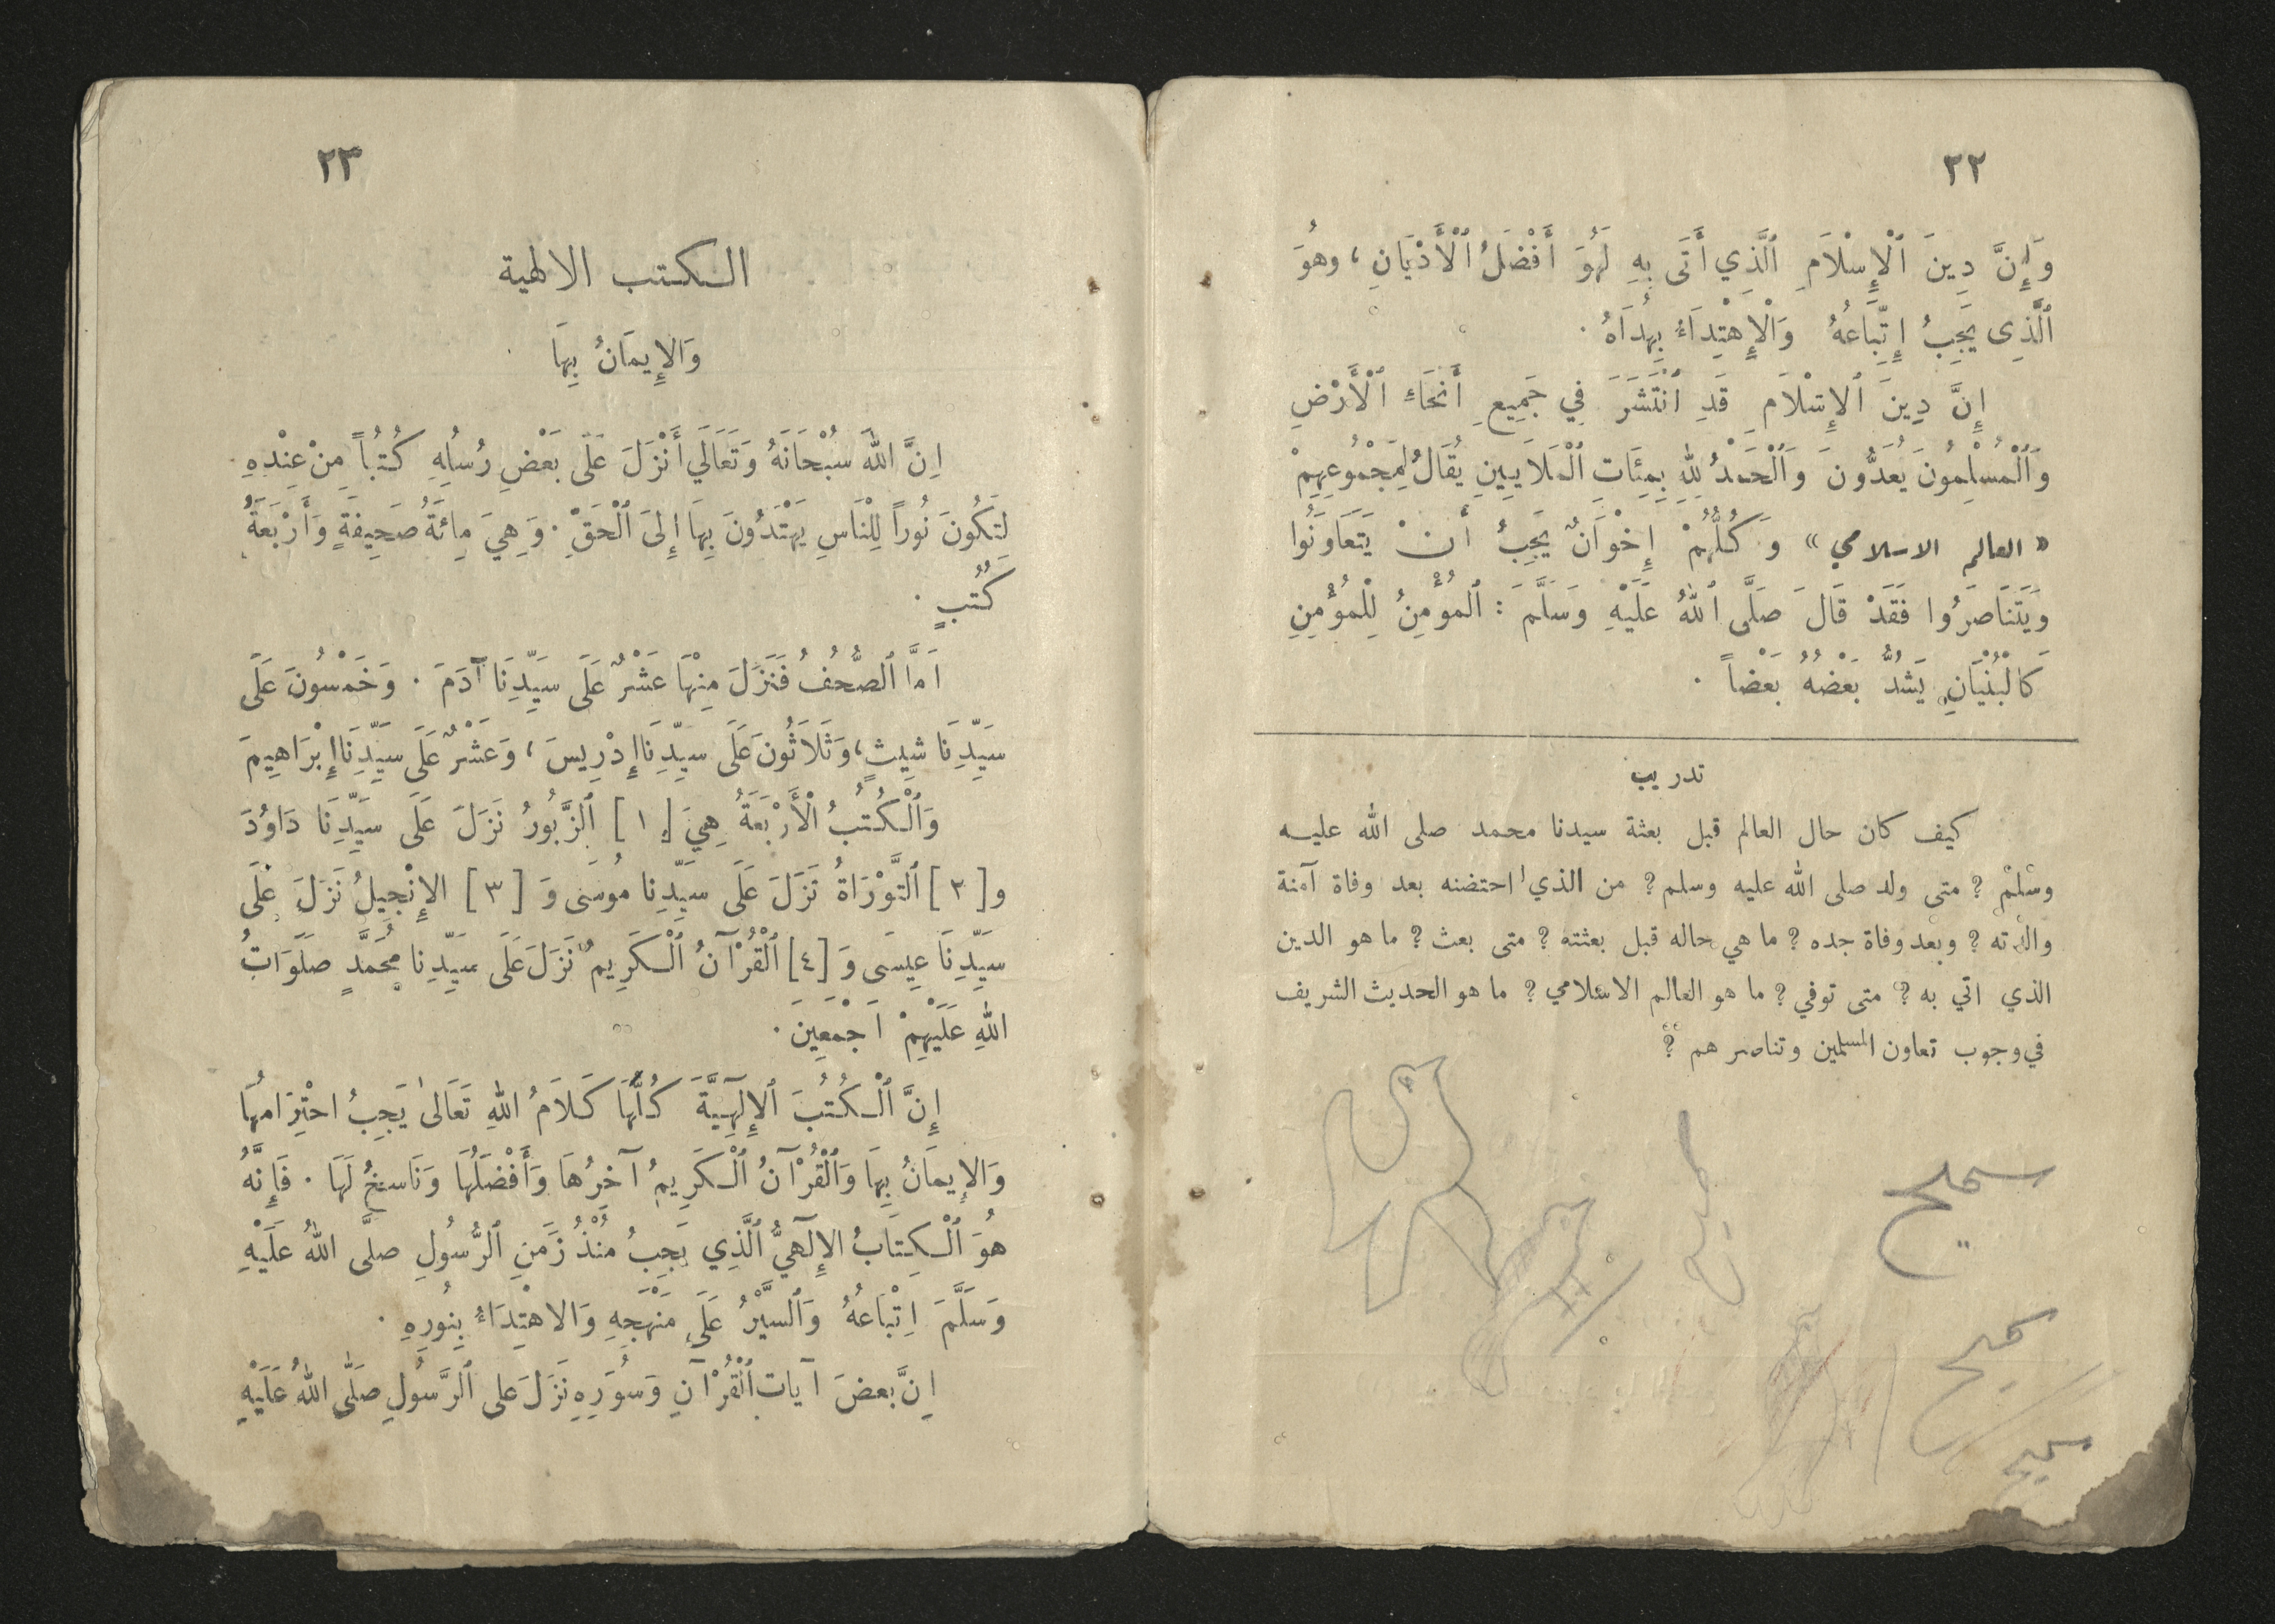 ٢٢
وَإِنَّ دِينَ ٱلْإِسْلَامِ ٱلَّذِي أَتَى بِهِ لَهُوَ أَفْضَلُ ٱلْأَدْيَانِ ، وهُوَ
ٱلَّذِى يَجِبُ إِتِّبَاعُهُ وَالْإِهْتِدَاءُ بِهُدَاهُ .
إِنَّ دِينَ ٱلإِسْلَامِ قَدِ ٱنْتَشَرَ فِي جَمِيعِ أَنْحَاءِ ٱلْأَرْضِ
وَٱلْمُسْلِمُونَ يُعَدُّونَ وَٱلْحَمْدُ لِلهِ بِمِئَاتِ ٱلْمَلَايِينِ يُقَالُ لِمَجْمُوعِهِمْ
« العالم الاسلامي » وَ كُلُّهُمْ إِخْوَانٌ يَجِبُ أَنْ يَتَعَاوَنُوا
وَيَتَنَاصَرُوا فَقَدْ قَالَ صَلَّى ٱللهُ عَلَيْهِ وَسَلَّمَ : ٱلمُؤْمِنُ لِلْمُؤْمِنِ
كَالْبُنْيَانِ يَشُدُّ بَعْضُهُ بَعْضاً .
تدريب
كيف كان حال العالم قبل بعثة سيدنا محمد صلى الله عليه
وسلم ? متى ولد صلى الله عليه وسلم ? من الذي احتضنه بعد وفاة آمنة
والدته ? وبعد وفاة جده ? ما هي حاله قبل بعثته ? متى بعث ? ما هو الدين
الذي اتي به ? متى توفي ? ما هو العالم الاسلامي ? ما هو الحديث الشريف
في وجوب تعاون المسلمين وتناصرهم ?
سميح
سميح
سميح
٢٣
الكتب الالهية
وَالإِيمَانُ بِهَا
اِنَّ اللهَ سُبْحَانَهُ وَتَعَالَي أَنْزَلَ عَلَى بَعْضِ رُسُلِهِ كُتُباً مِنْ عِنْدِهِ
لِتَكُونَ نُوراً لِلْنَاسِ يَهْتَدُونَ بِهَا إِلىَ ٱلْحَقِّ . وَهِيَ مِائَةُ صَحِيفَةٍ وَأَرْبَعَةُ
كُتُبٍ .
اَمَّا ٱلصُّحُفُ فَنَزَلَ مِنْهَا عَشْرٌ عَلَى سَيِّدِنَا آدَمَ . وَخَمْسُونَ عَلَى
سَيِّدِنَا شِيثٍ ، وَثَلَاثُونَ عَلَى سيِّدِنَا إِدْرِيسَ ، وَعَشْرٌ عَلَى سَيِّدِنَا إِبْرَاهِيمَ
وَٱلْكُتُبُ الْأَرْبَعَةُ هِيَ [١] ٱلزَّبُورُ نَزَلَ عَلَى سَيِّدِنَا دَاوُدَ
و [٢] ٱلتَّوْرَاةُ نَزَلَ عَلَى سيِّدِنا مُوسَى وَ [٣] الإِنْجِيلُ نَزَلَ عَلَى
سَيِّدِنَا عِيسَى وَ [٤] ٱلْقُرْآنُ ٱلْكَرِيمُ نَزَلَ عَلَى سَيِّدِنا مُحَمَّدٍ صَلَوَاتُ
اللهِ عَلَيْهِمْ اَجْمَعِينَ .
إِنَّ ٱلْكُتُبَ ٱلإِلَهِيَّةَ كُلَّهَا كَلَامُ اللهِ تَعَالىٰ يَجِبُ احْتِرَامُهَا
وَالإِيمَانُ بِهَا وَٱلْقُرْآنُ ٱلْكَرِيمُ آخِرُهَا وَأَفْضَلُهَا وَنَاسِخٌ لَهَا . فَإِنَّهُ
هُوَ ٱلْكِتَابُ الإِلَهِيُّ ٱلَّذِي يَجِبُ مُنْذُ زَمَنِ ٱلرَّسُولِ صلَّى اللهُ عَلَيْهِ
وَسَلَّمَ اِتْبَاعُهُ وَٱلسَّيْرُ عَلَى مَنْهَجِهِ وَالاهْتِدَاءُ بِنُورِهِ .
اِنَّ بعضَ آيات ٱلْقُرْآنِ وَسُوَرِهِ نَزَلَ على ٱلرَّسُولِ صَلَّى اللهُ عَلَيْهِ